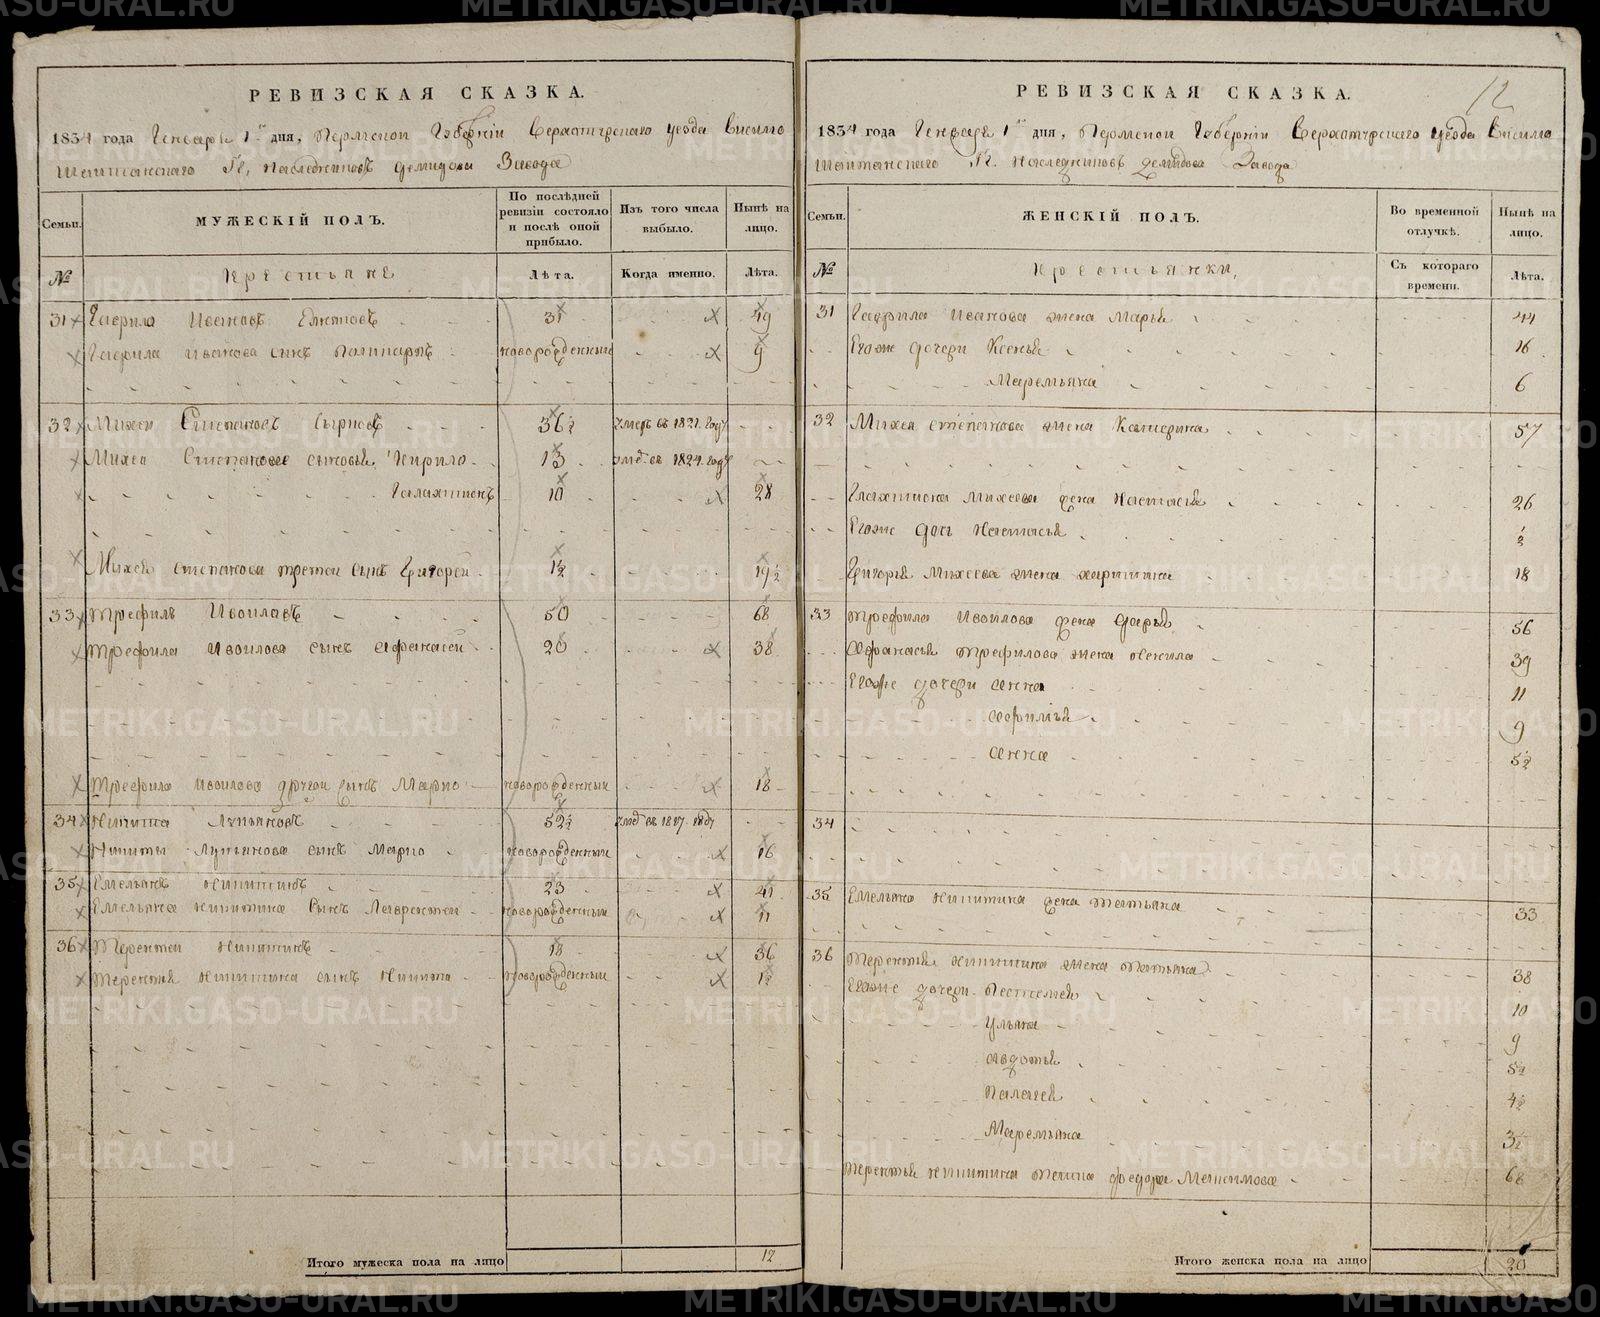 РЕВИЗСКАЯ СКАЗКА.
1834 года Генваря 1го дня, Пермской Губернiи Верхотурскаго уезда Висимо
Шайтанскаго Гг. наследниковъ Демидова Завода
Семьи.
МУЖЕСКIЙ ПОЛЪ.
По послѣдней ревизiи состояло и послѣ оной прибыло.
Изъ того числа выбыло.
Нынѣ на лицо.
№
Крестьяне
Лѣта.
Когда именно.
Лѣта.
31 Гаврила Ивановъ 31 49
Гаврила Иванова сынъ новорожденный 9
32 Михей Степановъ Сырновъ 36½ умеръ въ 1821. году
Михея Степанова сыновья Кирило 13 умеръ въ 1824. году
Галахтионъ 10 28
Михея Степанова третей сынъ Григорей 1½ 19½
33 Трефилъ Ивоиловъ 50 68
Трефила Ивоилова сынъ Афанасей 20 38
Трефила Ивоилова другой сынъ Марко новорожденный 18
34 Никита Лукьяновъ 52½ умеръ въ 1817. году
Никиты Лукьянова сынъ Марко новорожденный 16
35 Емельянъ Никитинъ 23 41
Емельяна Никитина сынъ Лаврентей новорожденный 11
36 Терентей Никитинъ 18 36
Терентья Никитина сынъ Никита новорожденный 1½
Итого мужеска пола на лицо 12
12
РЕВИЗСКАЯ СКАЗКА.
1834 года Генваря 1го дня, Пермской Губернiи Верхотурскаго уезда Висимо
Шайтанскаго Гг. наследниковъ Демидова Завода
Семьи.
ЖЕНСКIЙ ПОЛЪ.
Во временной отлучкѣ.
Нынѣ на лицо.
№
Крестьянки,
Съ котораго времени.
Лѣта.
31 Гаврила Иванова жена Марья 44
Егоже дочери Ксенья 16
Маремьяна 6
32 Михея Степанова жена Катерина 57
Галахтиона Михеева жена Настасья 26
Егоже дочь Настасья ½
Григорья Михеева жена Харитина 18
33 Трефила Ивоилова жена Дарья 56
Афанасья Трефилова жена Акилина 39
Егоже дочери Анна 11
Афимья 9
Анна 5½
34
35 Емельяна Никитина жена Татьяна 33
36 Терентья Никитина жена Татьяна 38
Егоже дочери Пестимея 10
Ульяна 9
Авдотья 5½
Палагея 4½
Маремьяна 3½
Терентья Никитина Федора Максимова 68
Итого женска пола на лицо 20
METRIKI.GASO-URAL.RU